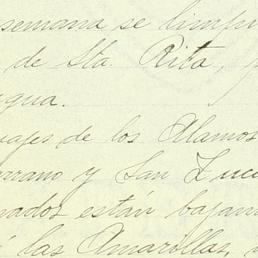 semana se limpi
de Sta. Rita, p
agua.
uajes de los Alamos
rrano y San Luc
nados están bajan
á las Amarillas,